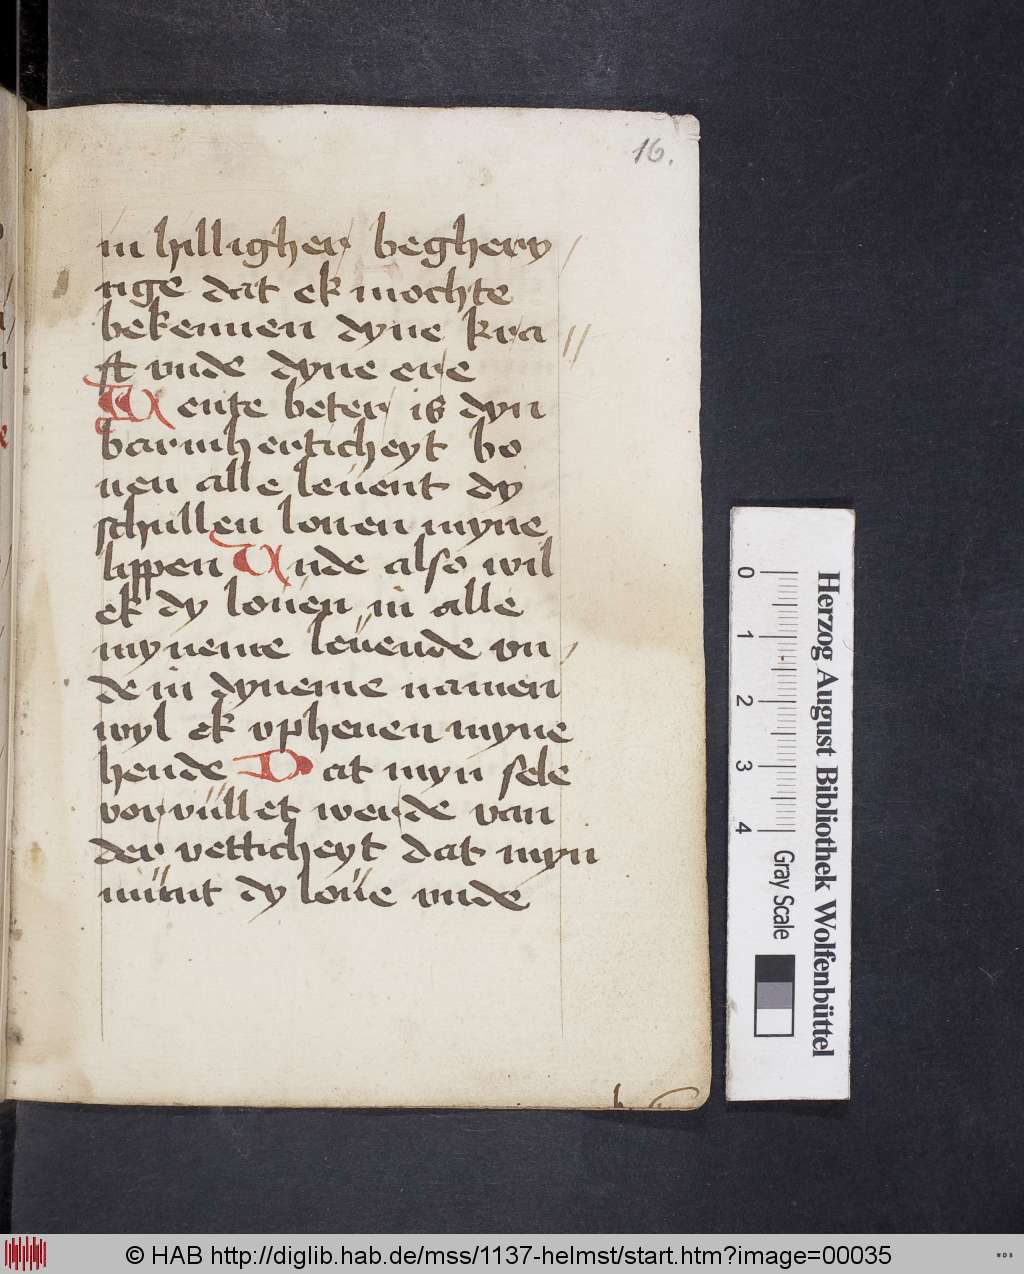 16.
in hilligher beghery /
nge dat ek mochte
bekennen dyne kra //
ft vnde dyne ere
Wente beter is dyn
barmherticheyt bo
uen alle leuent dy
schullen louen myne
lippen Unde also wil
ek dy louen in alle
myneme leuende vn /
de in dyneme namen
wyl ek vpheuen myne
hende Dat myn sele
vorvüllet werde van
der vetticheyt dat myn
münt dy loue vnde
Herzog August Bibliothek Wolfenbüttel
0 1 2 3 4
Gray Scale
© HAB http://diglib.hab.de/mss/1137-helmst/start.htm?image=00035